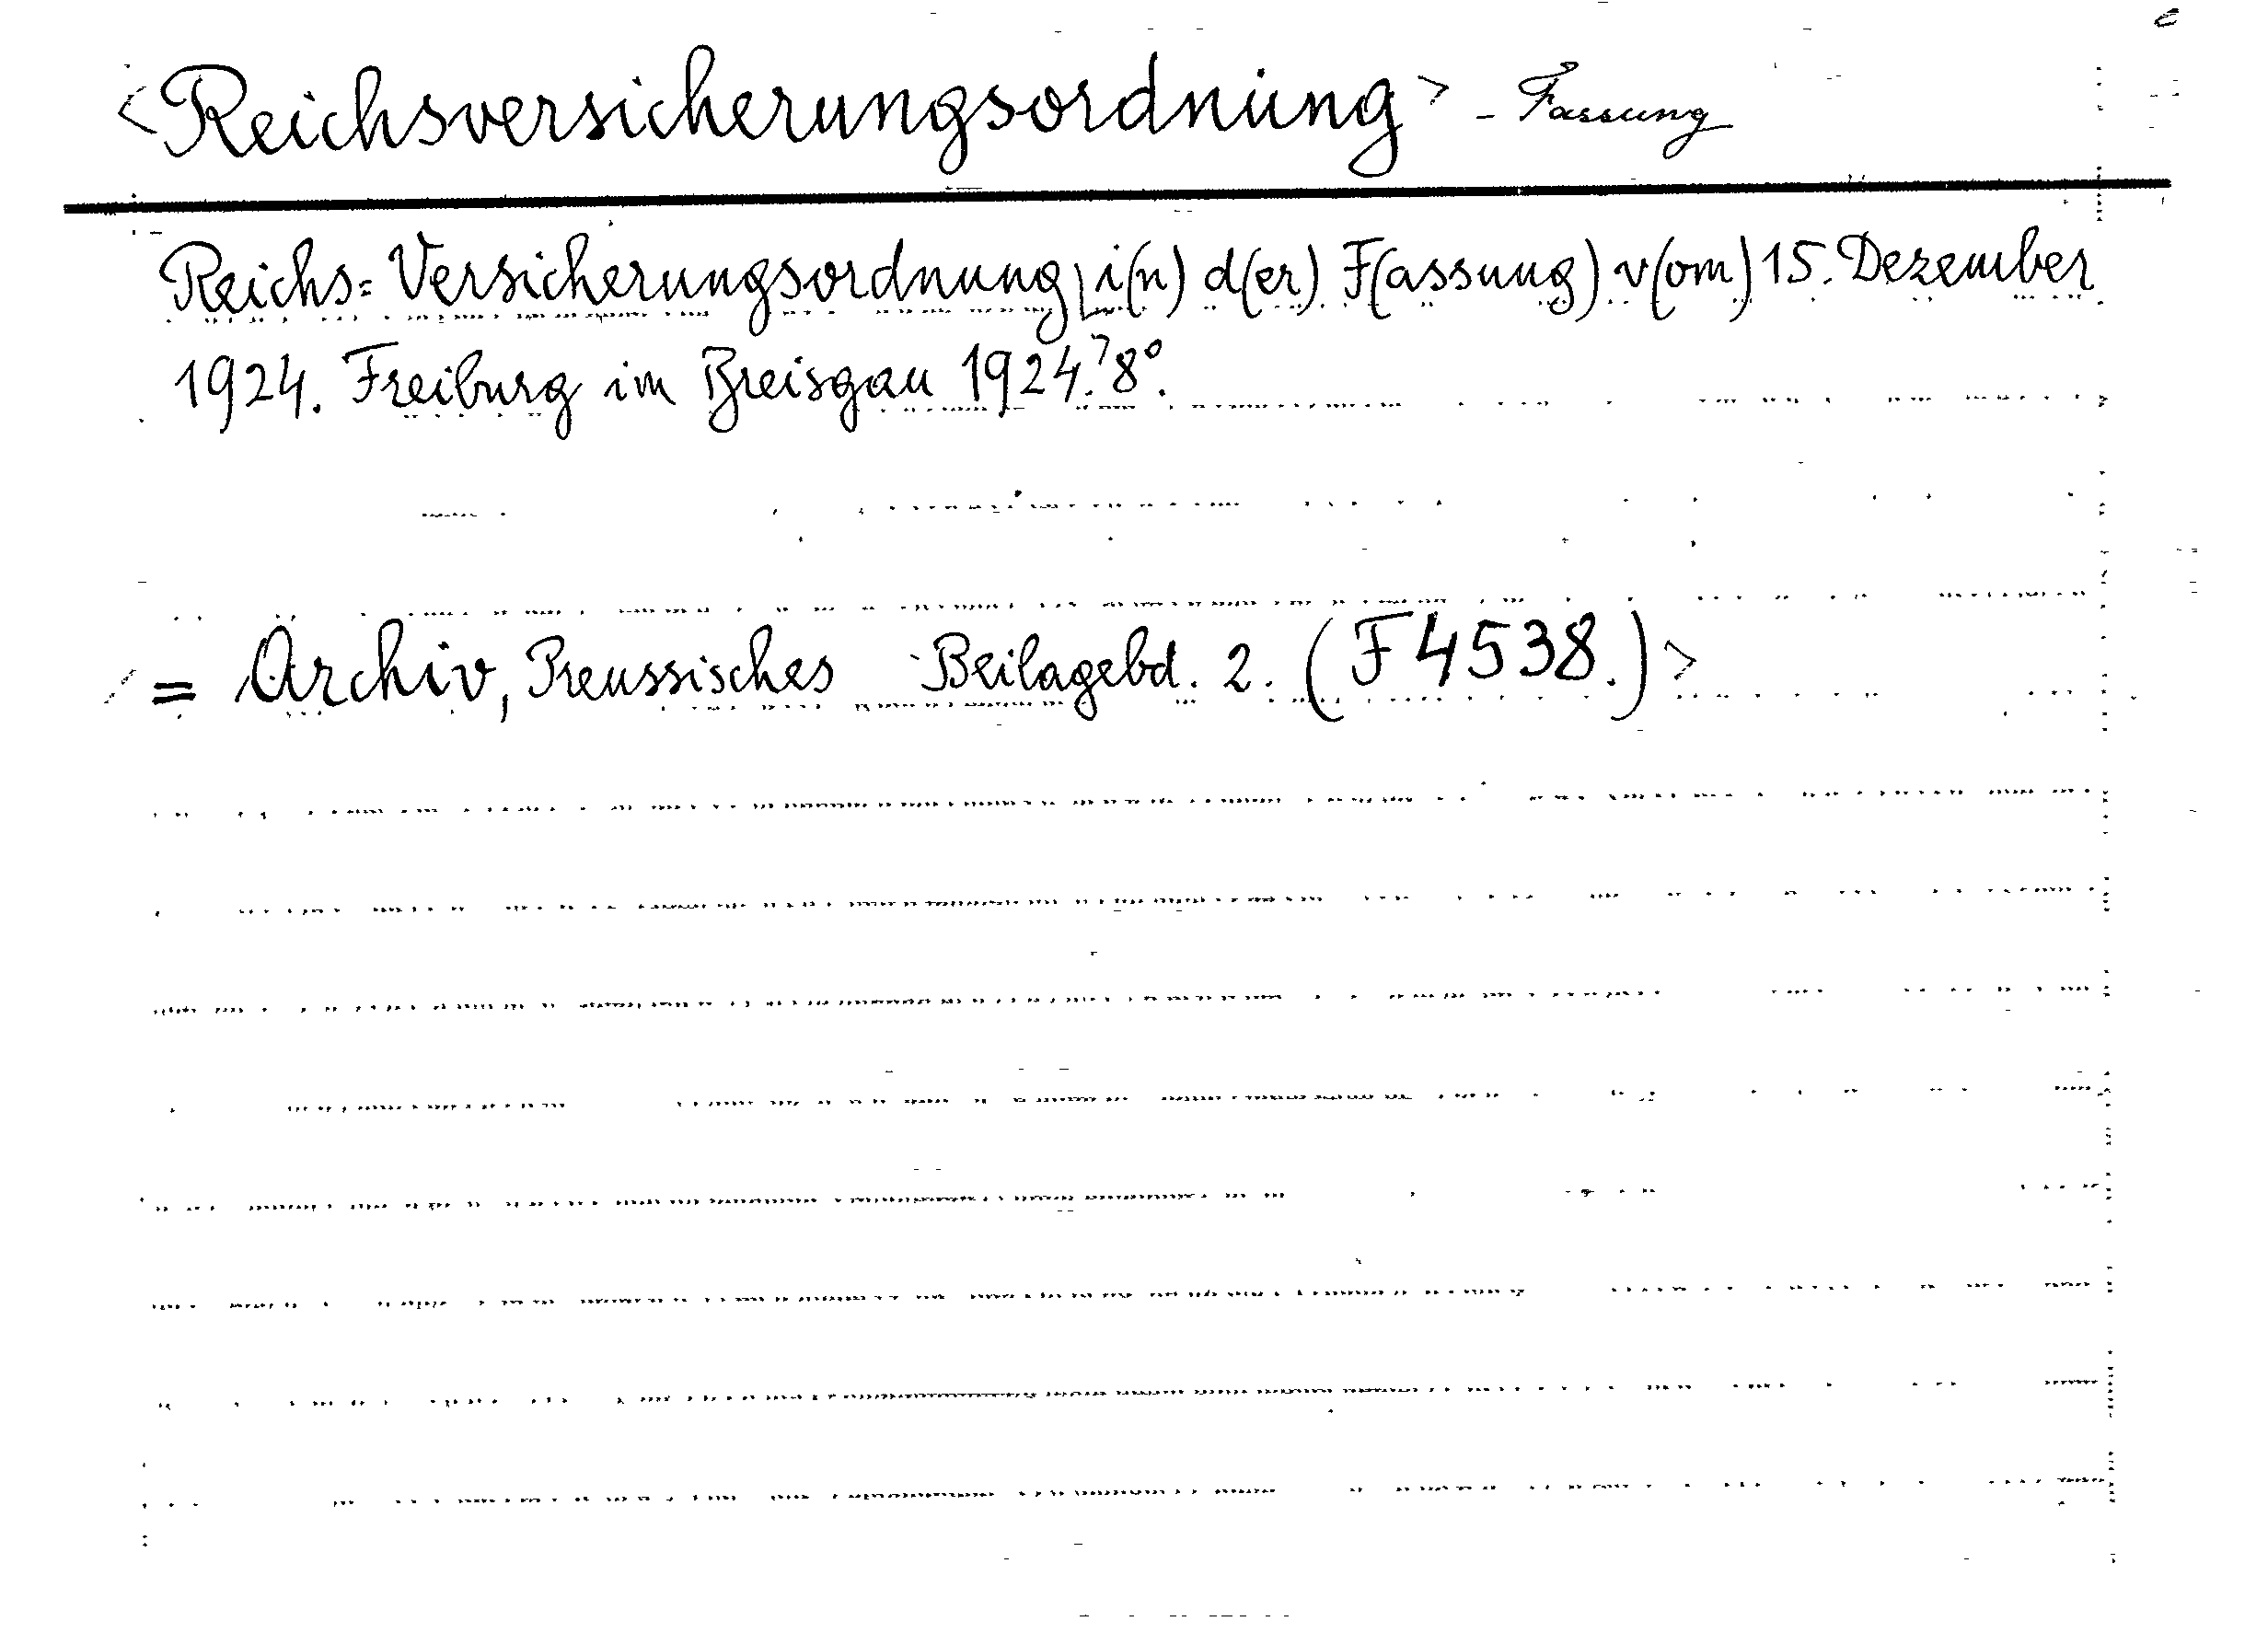 <Reichsversicherungsordnung> - Fassung
Reichs=Versicherungsordnung i(n) d(er) F(assung) v(om) 15. Dezember
1924. Freiburg im Breisgau 1924. 8°.
= Archiv, Preussisches Beilagebd. 2. (F 4538.)>